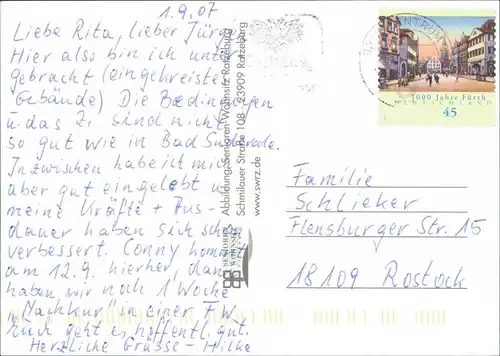 1.9.07
Liebe Rita, lieber Jürgen
Hier also bin ich unter
gebracht (eingekreiste
Gebäude) Die Bedingungen
u. das Z. sind nicht
so gut wie in Bad Suderode.
Inzwischen habe ich mich
aber gut eingelebt u.
meine Kräfte + Aus-
dauer haben sich schon
verbessert. Conny kommt
am 12.9. hierher, dann
haben wir noch 1 Woche
"Nachkur" in einer FW.
Euch geht es hoffentl. gut.
Herzliche Grüsse - Hilke
Abbildung: Senioren Wohnsitz Ratzeburg
Schmilauer Straße 108 · 23909 Ratzeburg
www.swrz.de
SENIOREN
WOHNSITZ
1000 Jahre Fürth
DEUTSCHLAND
45
Familie
Schlieker
Flensburger Str. 15
18109 Rostock